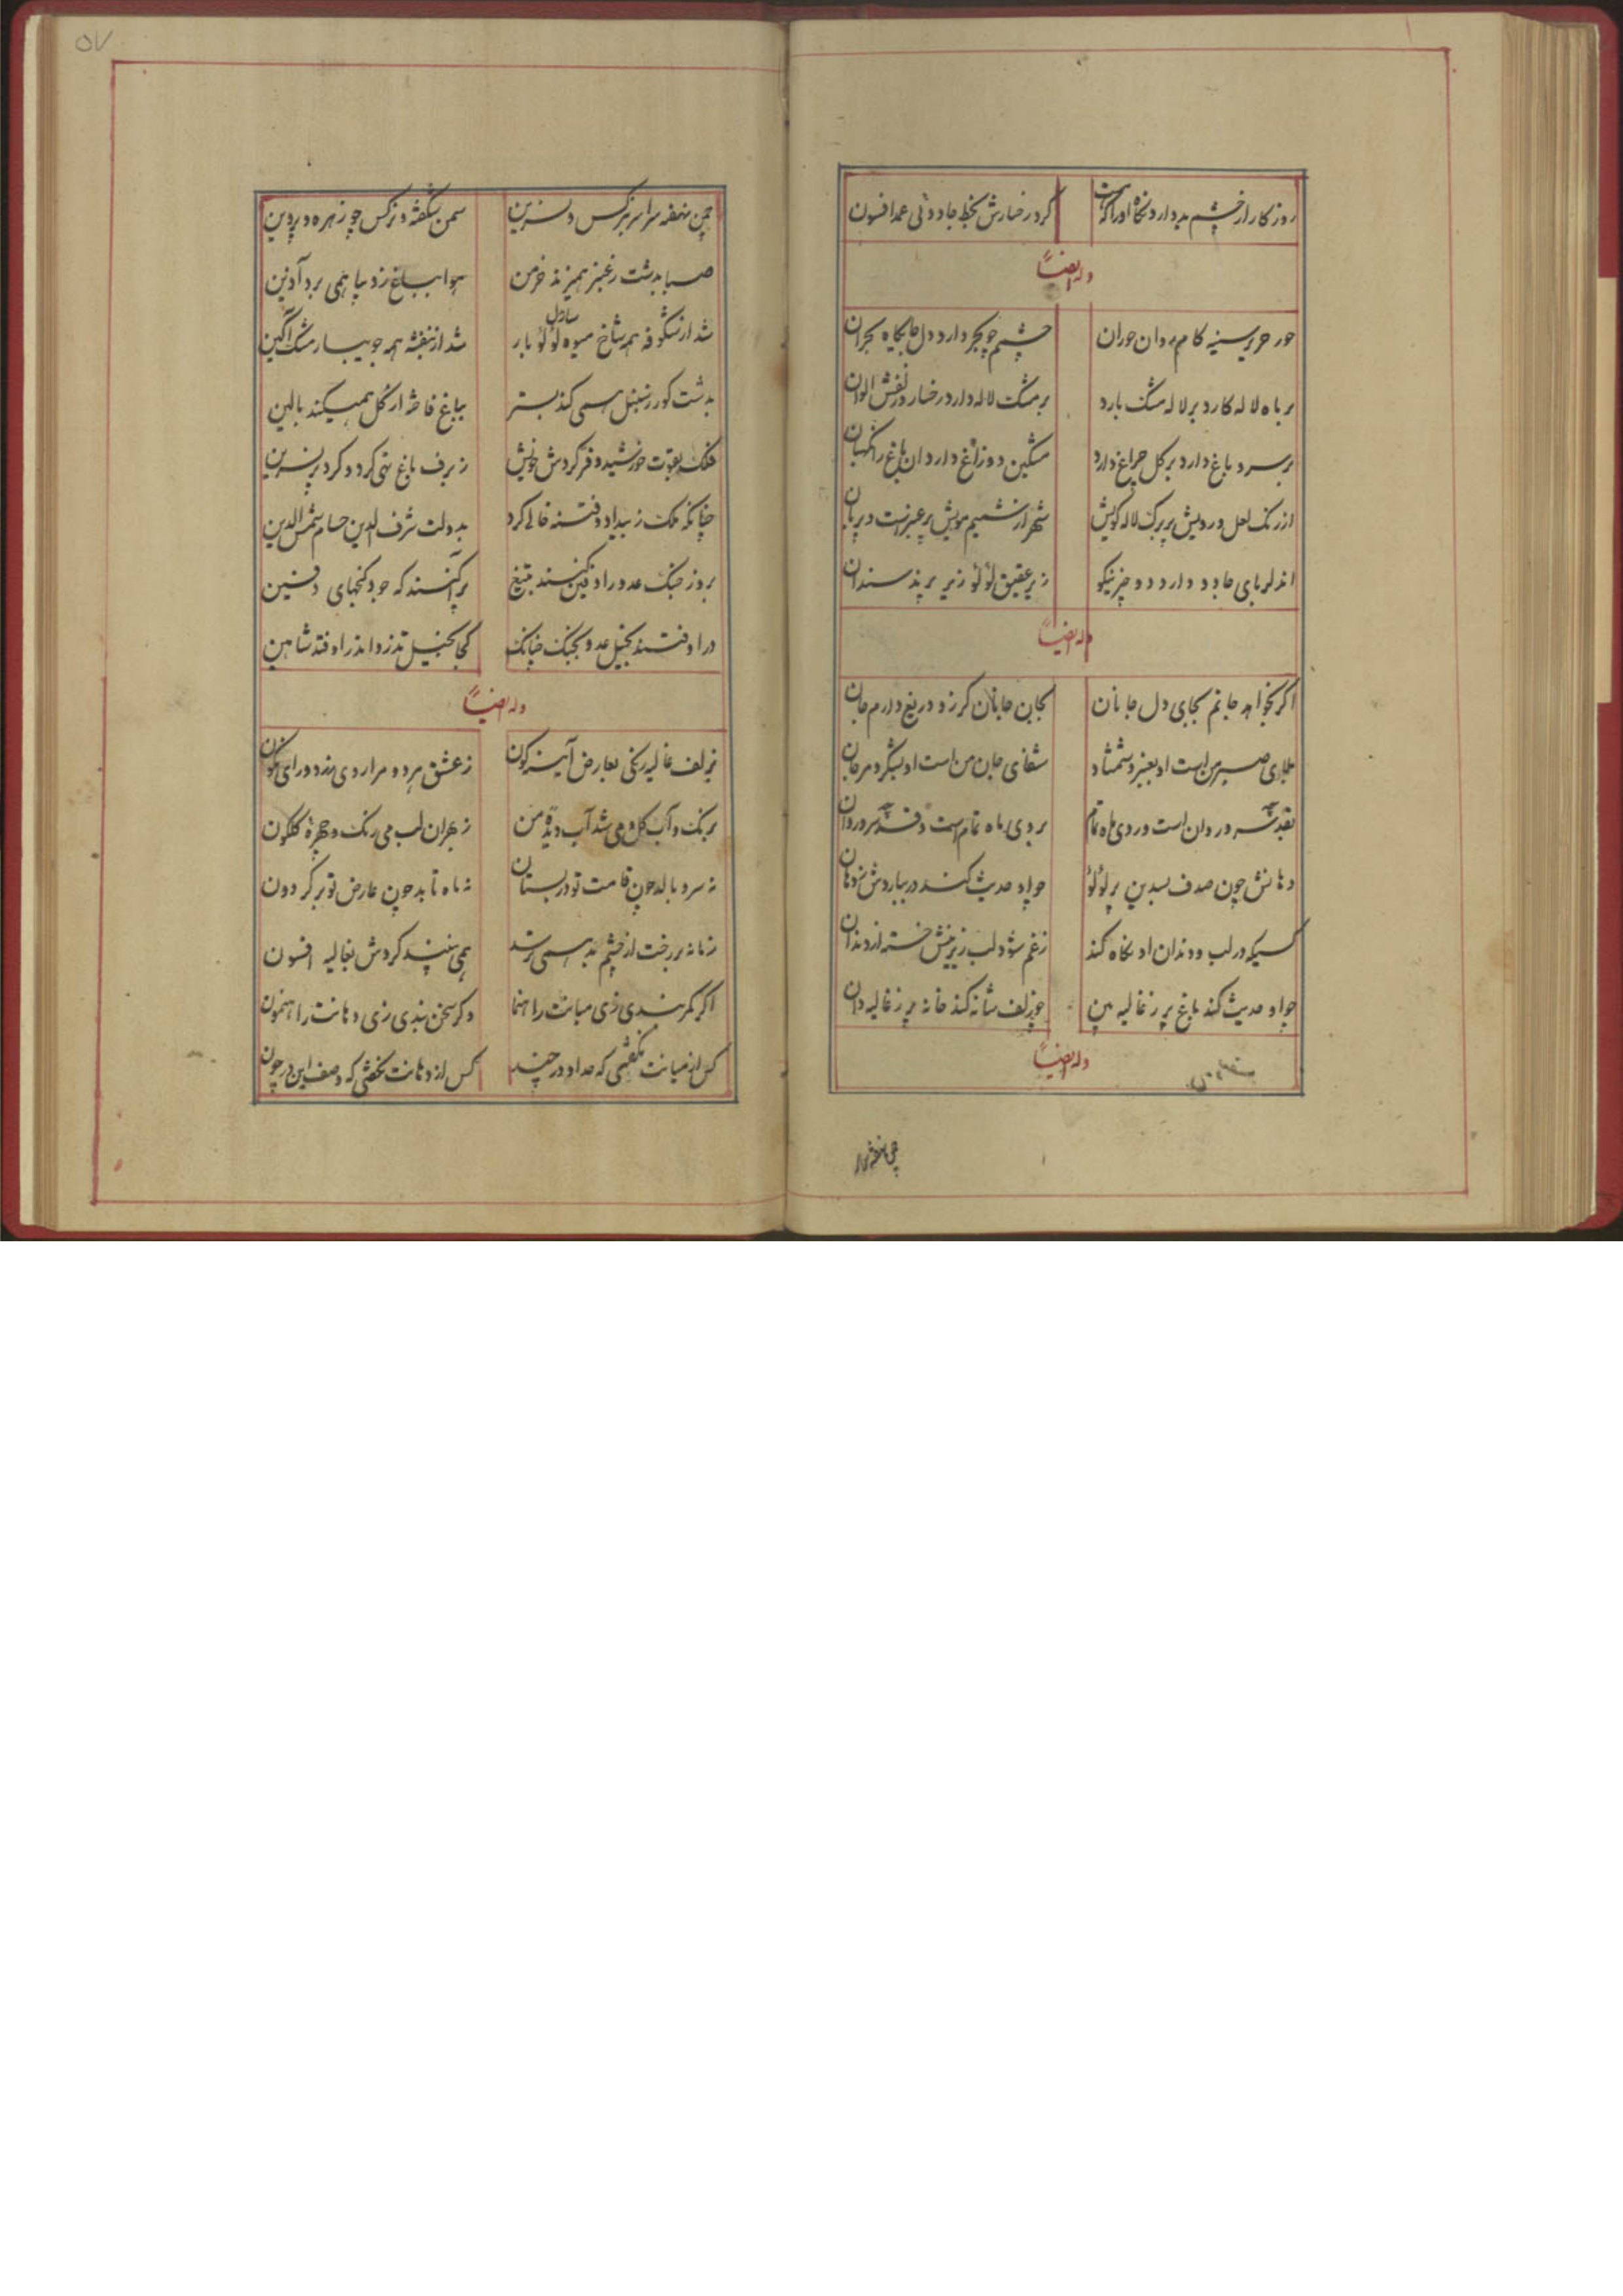 روزکار از چشم بد دارد نکاه اورا که هست	کرد رخسارش بخط جادوئی عمدا فسون
وله ایضاً
حور حریر سینه کام روان حوران	چشمم چو بحر دارد دل جایکاه بحران
بر ماه لاله کارد بر لاله مشک بارد	بر مشک لاله دارد رخسار و زلفش الوان
بر سرو باغ دارد بر کل چراغ دارد	مشکین دو زاغ دارد آن باغ را نکهبان
از رنک لعل و رویش پر برک لاله کویش	شهر از شمیم مویش پر عنبرست و پربان
آن دلربای جادو دارد دو چیز نیکو	زیر عقیق لؤلؤ زیر پرند سندان
وله ایضاً
اکر نخواهد جانم بجای دل جانان	بجان جانان کر زو دریغ دارم جان
بلای صبر من است او بعنبر و شمشاد	شفای جان من است او بشکر و مرجان
بقد چه سرو روان است و روی ماه تمام	بروی ماه تمام است و قد چه سرو روان
دهانش چون صدف بسدین پر لؤلؤ	چو او حدیث کند در ببارد ش ز دهان
کسیکه در لب و دندان او نکاه کند	ز غم شود لب زیرینش خسته از دندان
چو او حدیث کند باغ پر ز غالیه بین	چو زلف شانه کند خانه پر ز غالیه دان
وله ایضاً
۵۷
چمن بنفشه سراسر ز نرکس و نسرین	سمن شکفته و نرکس چو زهره و پروین
صبا بدشت ز عنبر همی زند خرمن	هوا بباغ ز دیبا همی برد آذین
شد از شکوفه همه شاخ میوه لؤلؤ بار	شد از بنفشه همه جویبار مشک آکین
بدشت کور ز سنبل همی کند بستر	بباغ فاخته از کل همیکند بالین
فلک بقوت خورشید و فر کردش خویش	ز برف باغ تهی کرد و کرد پر نسرین
چنانکه ملک ز بیداد و فتنه خالی کرد	بدولت شرف الدین حسام شمس الدین
بروز جنک عدو را دفین کنند بتیغ	پراکنند که جود کنجهای دفین
در اوفتند بخیل عدو بجنک چنانک	کجا بخیل تذرو اندر اوفتد شاهین
وله ایضاً
بزلف غالیه رنکی بعارض آینه کون	ز عشق هر دو مرا روی زرد و رای نکون
برنک و آب کل و می شد آب دیده من	ز هجران لب می رنک و چهره کلکون
نه سرو بالد چون قامت تو در بستان	نه ماه تابد چون عارض تو بر کردون
زمانه بر رخت از چشم بد همی ترسد	همی نبیند کردش بغالیه افسون
اکر کمر بندی زی میانت راهنما	و کر سخن نبدی زی دهانت راهنمون
کس از میانت نکفتی که حد او در چند	کس از دهانت نکفتی که وصف این در چون